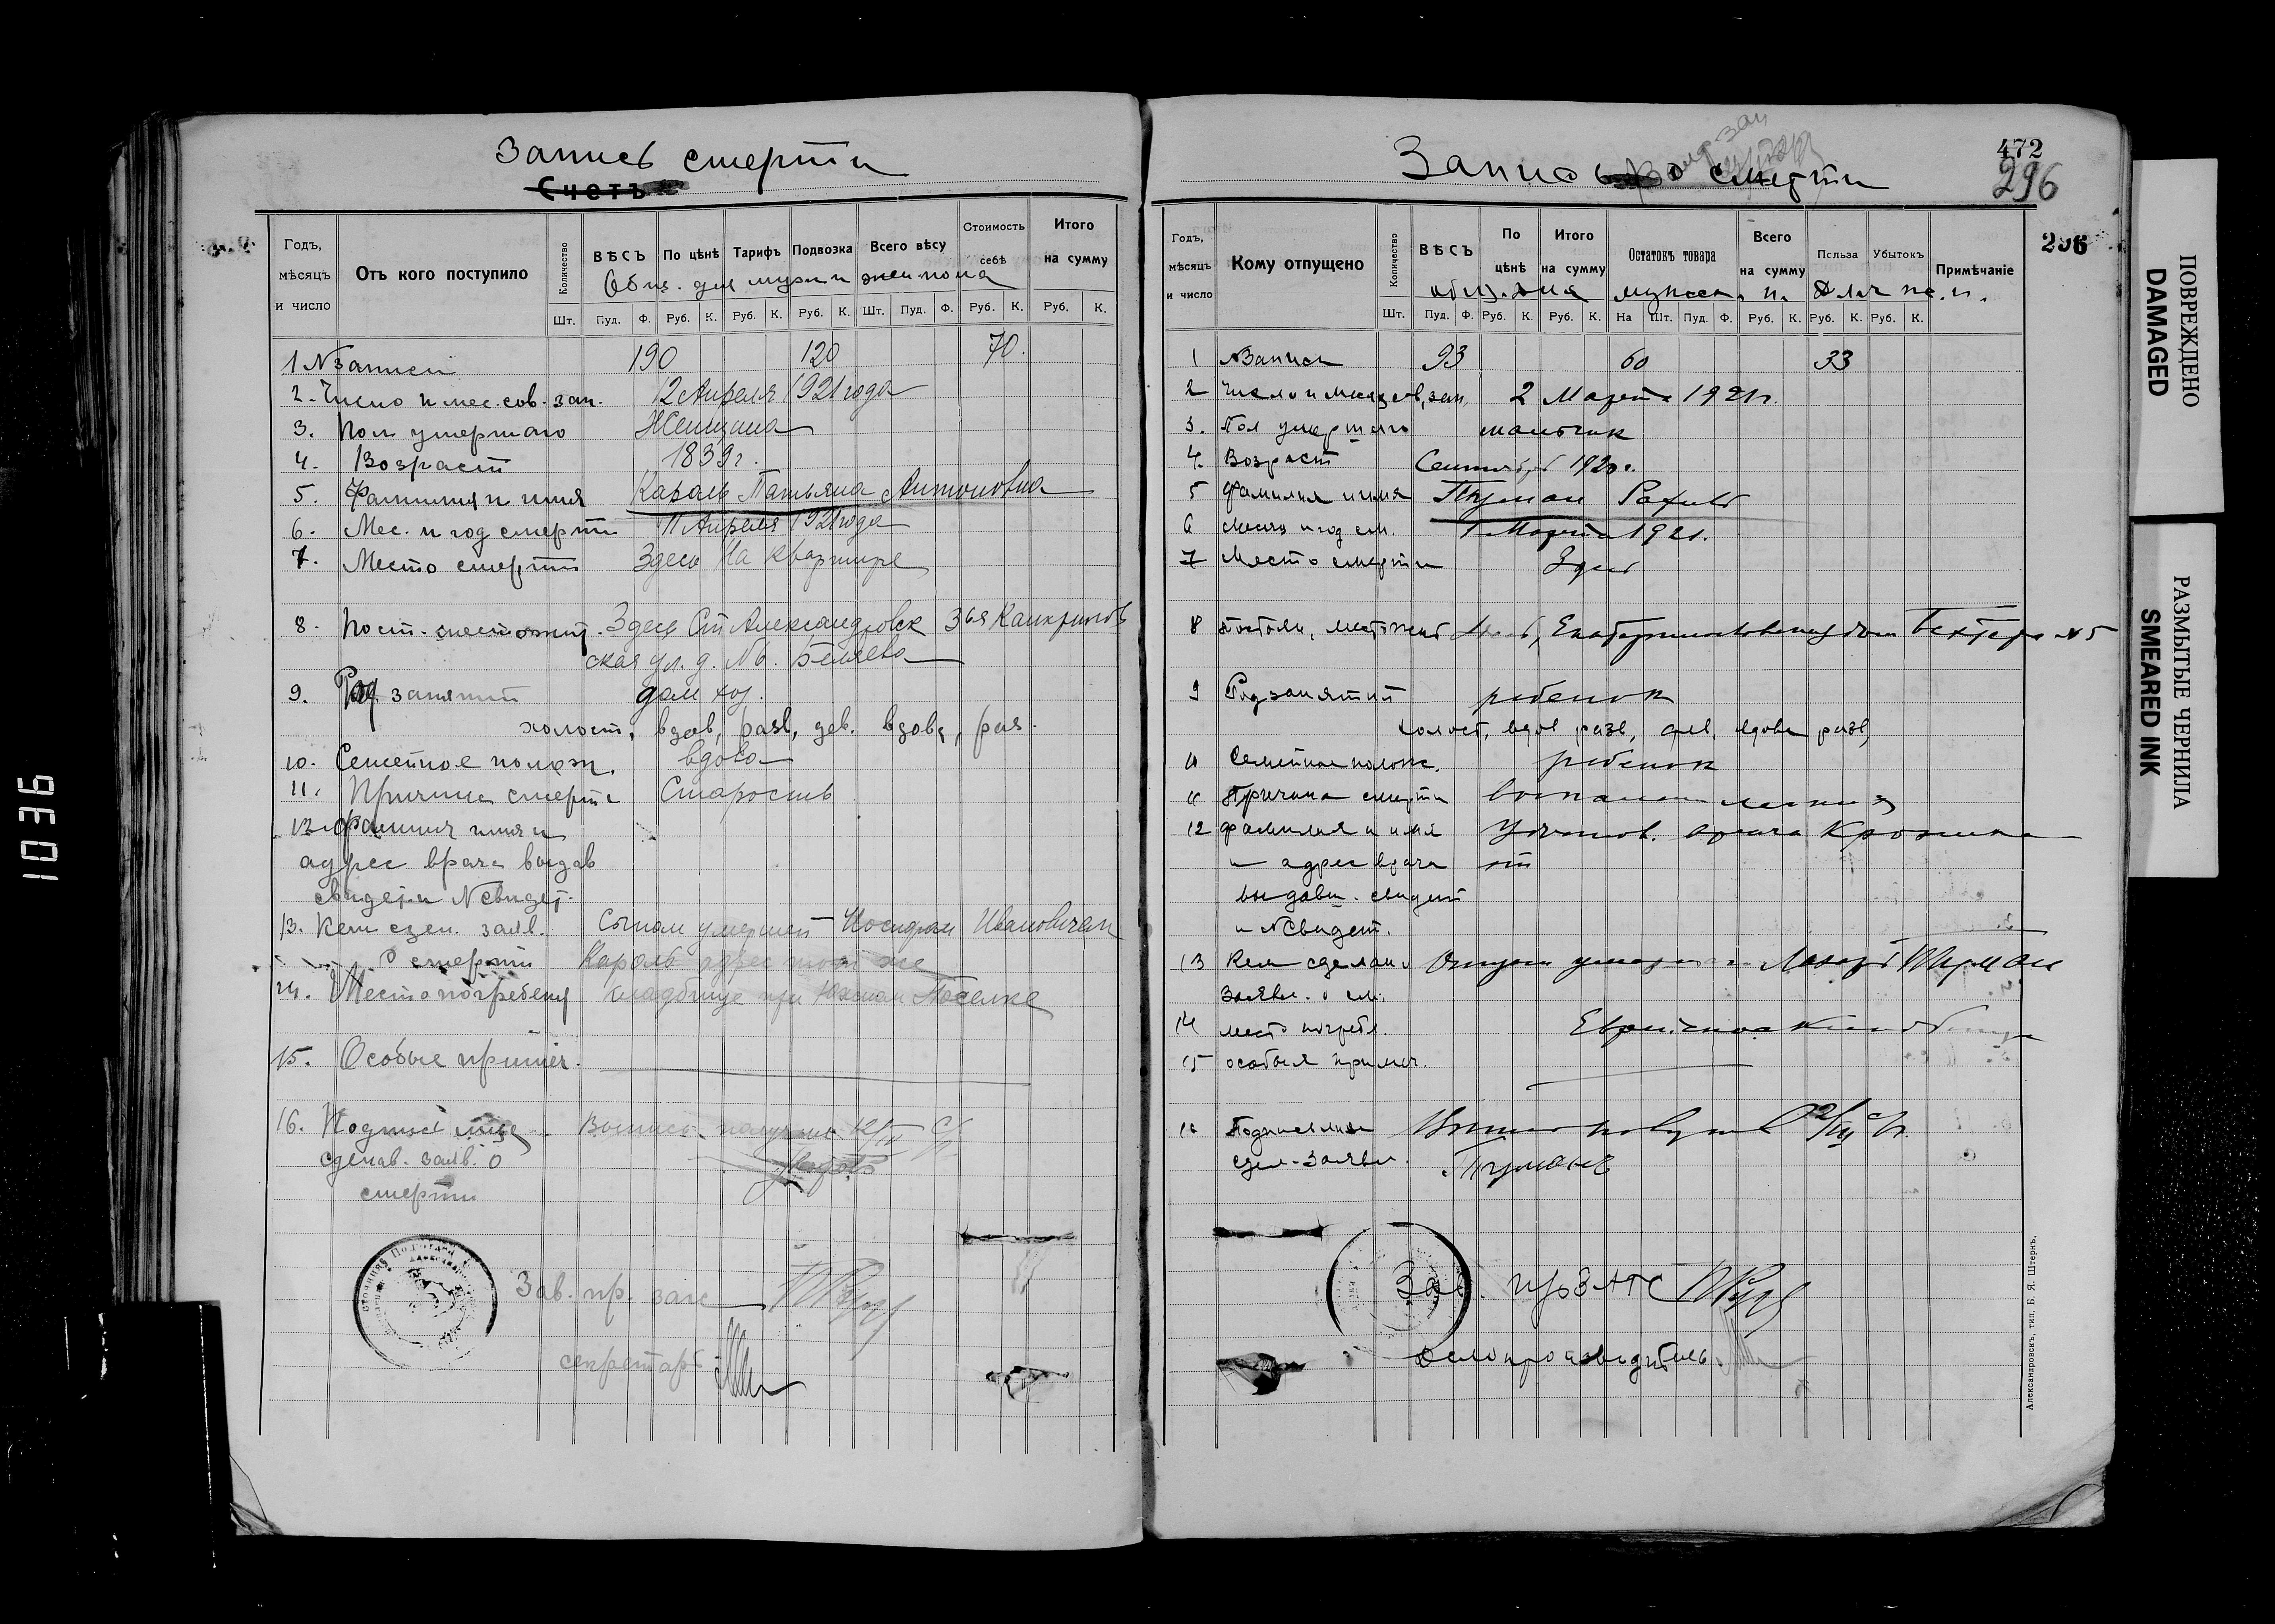 Запись смерти
Счетъ
Годъ, мѣсяцъ и число
Отъ кого поступило
Количество
Шт.
ВѢСЪ
По цѣнѣ
Тарифъ
Подвозка
Всего вѣсу
Стоимость себѣ
Итого на сумму
Общ. для муж и жен пола
Пуд. Ф. Руб. К. Руб. К. Руб. К. Шт. Пуд. Ф. Руб. К. Руб. К.
1 N записи 190 120 70.
2. Число и мес. сов. зап. 12 Апреля 1921 года
3. Пол умершаго Женщина
4. Возраст 1839 г.
5. Фамилия и имя Кароль Татьяна Антоновна
6. Мес. и год смерти 11 Апреля 1921 года
7. Место смерти Здесь На квартире
8. Пост. местожит. Здесь Ст Александровск 3ья Канкринов
ская ул. д. N6. Беляева
9. Род занятий дом хоз.
холост, вдов, разв, дев. вдова, раз.
10. Семейное полож. вдова
11. Причина смерти Старость
12. Фамилия имя и
адрес врача выдав
свидет. и N свидет.
13. Кем сдел. заяв. Сыном умершей Иосифом Ивановичем
о смерти Кароль адрес тот же
14. Место погребения кладбище при Южном Поселке
15. Особые примеч.
16. Подпись лица Выпись получил 12/IV
сделав. заяв. о
смерти
Зав. пр. загс
секретарь
Запись о смерти
472
296
296
Годъ, мѣсяцъ и число
Кому отпущено
Количество
Шт.
ВѢСЪ
По цѣнѣ
Итого на сумму
Остатокъ товара
Всего на сумму
Польза
Убытокъ
Примѣчаніе
общ. для мужск. п. для же. п.
Пуд. Ф. Руб. К. Руб. К. На Шт. Пуд. Ф. Руб. К. Руб. К. Руб. К.
1 N Записи 93 60 33
2 Число и месяц сов, зап. 2 Марта 1921 г.
3. Пол умершаго мальчик
4. Возраст Сентябрь 1920 г.
5 Фамилия и имя
6 Месяц и год см. 1 Марта 1921.
7 Место смерти Здесь
8 Постоян, местожит
N 5
9 Род занятий ребенок
холост, вдов разв, дев, вдова разв,
10 Семейное полож. ребенок
11 Причина смерти воспаление легких
12 фамилия и имя
и адрес врача
выдавш. свидет
и N свидет.
13 Кем сделано Отцом умершаго
заявл. о см.
14 место погребл. Еврейское кладбище
15 особыя примеч.
16 Подпись лица
сдел. заявл.
Зав. п/о ЗАГС
Делопроизводитель
Александровскъ, тип. Б. Я. Штернъ.
ПОВРЕЖДЕНО
DAMAGED
РАЗМЫТЫЕ ЧЕРНИЛА
SMEARED INK
1036